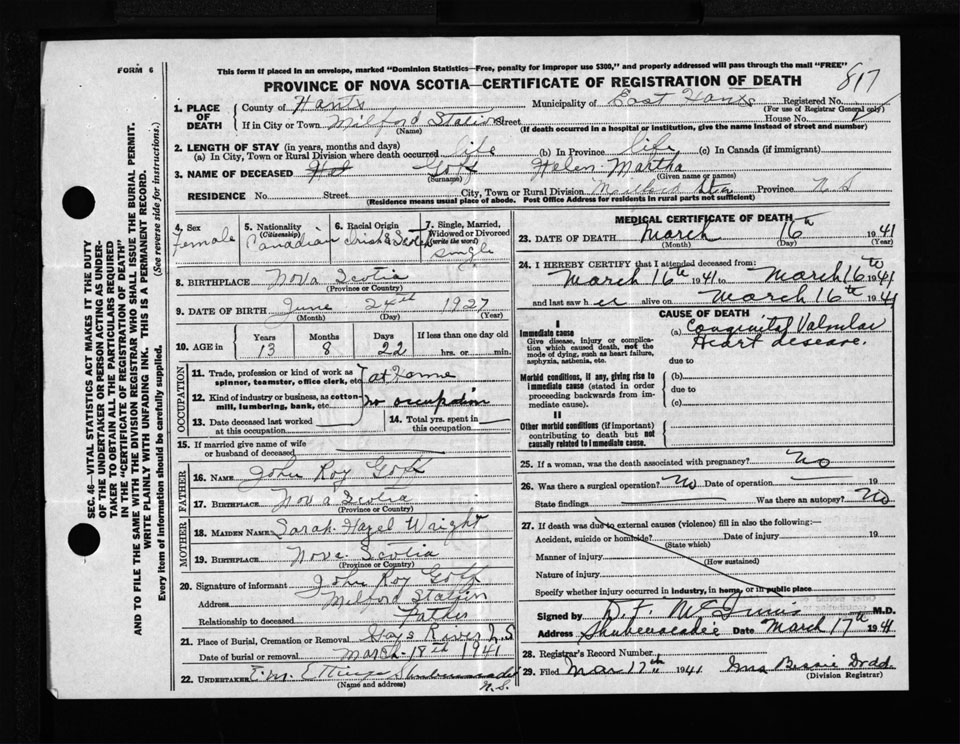 FORM 6
This form if placed in an envelope, marked "Dominion Statistics—Free, penalty for improper use $300," and properly addressed will pass through the mail "FREE"
PROVINCE OF NOVA SCOTIA—CERTIFICATE OF REGISTRATION OF DEATH
817
SEC. 46—VITAL STATISTICS ACT MAKES IT THE DUTY
OF THE UNDERTAKER OR PERSON ACTING AS UNDER-
TAKER TO OBTAIN ALL THE PARTICULARS REQUIRED
IN THE "CERTIFICATE OF REGISTRATION OF DEATH"
AND TO FILE THE SAME WITH THE DIVISION REGISTRAR WHO SHALL ISSUE THE BURIAL PERMIT.
WRITE PLAINLY WITH UNFADING INK. THIS IS A PERMANENT RECORD.
Every item of information should be carefully supplied. (See reverse side for instructions.)
1. PLACE OF DEATH
County of Hants Municipality of East Hants Registered No.
(For use of Registrar General only)
If in City or Town Milford Station Street House No.
(Name) (If death occurred in a hospital or institution, give the name instead of street and number)
2. LENGTH OF STAY (in years, months and days)
(a) In City, Town or Rural Division where death occurred life (b) In Province life (c) In Canada (if immigrant)
3. NAME OF DECEASED Hel Goff Helen Martha
(Surname) (Given name or names)
RESIDENCE No. Street City, Town or Rural Division Milford Sta Province N S
(Residence means usual place of abode. Post Office Address for residents in rural parts not sufficient)
4. Sex Female
5. Nationality (Citizenship) Canadian
6. Racial Origin Irish & Scotch
7. Single, Married, Widowed or Divorced (write the word) Single
8. BIRTHPLACE Nova Scotia
(Province or Country)
9. DATE OF BIRTH June 24th 1927
(Month) (Day) (Year)
10. AGE in Years Months Days If less than one day old
13 8 22 hrs. or min.
OCCUPATION
11. Trade, profession or kind of work as spinner, teamster, office clerk, etc. at home
12. Kind of industry or business, as cotton-mill, lumbering, bank, etc. no occupation
13. Date deceased last worked at this occupation
14. Total yrs. spent in this occupation
15. If married give name of wife or husband of deceased
FATHER
16. NAME John Roy Goff
17. BIRTHPLACE Nova Scotia
(Province or Country)
MOTHER
18. MAIDEN NAME Sarah Hazel Wright
19. BIRTHPLACE Nova Scotia
(Province or Country)
20. Signature of informant John Roy Goff
Address Milford Station
Relationship to deceased Father
21. Place of Burial, Cremation or Removal Gays River N.S
Date of burial or removal March 18th 1941
22. UNDERTAKER E. M. Ettinger Shubenacadie
(Name and address) N. S.
MEDICAL CERTIFICATE OF DEATH
23. DATE OF DEATH March 16th 1941
(Month) (Day) (Year)
24. I HEREBY CERTIFY that I attended deceased from:
March 16th 1941 to March 16th 1941
and last saw her alive on March 16th 1941
CAUSE OF DEATH
I
Immediate cause
Give disease, injury or complication which caused death, not the mode of dying, such as heart failure, asphyxia, asthenia, etc.
(a) Congenital Valvular
Heart desease.
due to
Morbid conditions, if any, giving rise to immediate cause (stated in order proceeding backwards from immediate cause).
(b)
due to
(c)
II
Other morbid conditions (if important) contributing to death but not causally related to immediate cause.
25. If a woman, was the death associated with pregnancy? No
26. Was there a surgical operation? No Date of operation 19
State findings Was there an autopsy? No
27. If death was due to external causes (violence) fill in also the following:—
Accident, suicide or homicide? Date of injury 19
(State which)
Manner of injury
(How sustained)
Nature of injury
Specify whether injury occurred in industry, in home, or in public place
Signed by D. F. McInnis M.D.
Address Shubenacadie Date March 17th 1941
28. Registrar's Record Number
29. Filed Mar 17th 1941 Bessie Dodd
(Division Registrar)